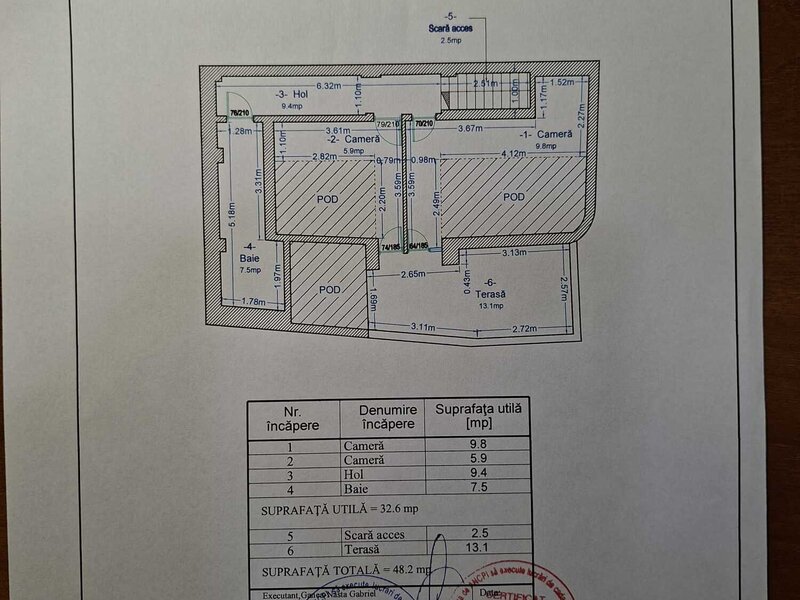 -5-
Scară acces
2.5mp
6.32m
2.51m
1.52m
-3- Hol
9.4mp
1.10m
1.00m
1.17m
2.27m
76/210
79/210
70/210
1.28m
3.61m
3.67m
1.10m
-2- Cameră
5.9mp
-1- Cameră
9.8mp
2.82m
0.79m
0.98m
4.12m
3.31m
3.59m
3.59m
POD
POD
2.20m
2.49m
5.18m
74/185
64/185
-4-
Baie
7.5mp
3.13m
2.65m
0.43m
-6-
Terasă
13.1mp
2.57m
1.97m
POD
1.78m
1.69m
3.11m
2.72m
Nr. încăpere Denumire încăpere Suprafaţa utilă [mp]
1 Cameră 9.8
2 Cameră 5.9
3 Hol 9.4
4 Baie 7.5
SUPRAFAŢĂ UTILĂ = 32.6 mp
5 Scară acces 2.5
6 Terasă 13.1
SUPRAFAŢĂ TOTALĂ = 48.2 mp
Executant, Nasta Gabriel
Data:
ANCPI să execute lucrări de
CERTIFICAT
să execute lucrări de